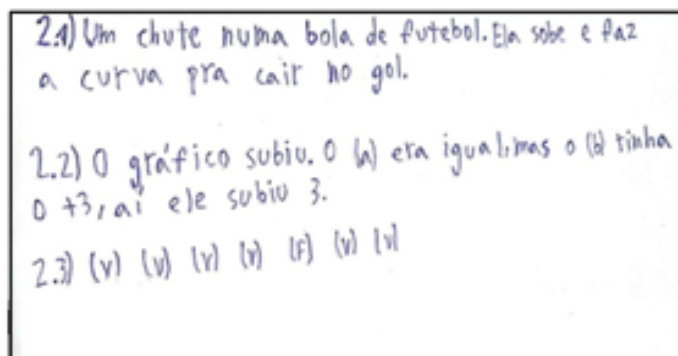 2.1) Um chute numa bola de futebol. Ela sobe e faz
a curva pra cair no gol.
2.2) O gráfico subiu. O (a) era igual, mas o (b) tinha
o +3, aí ele subiu 3.
2.3) (v) (v) (v) (v) (F) (v) (v)